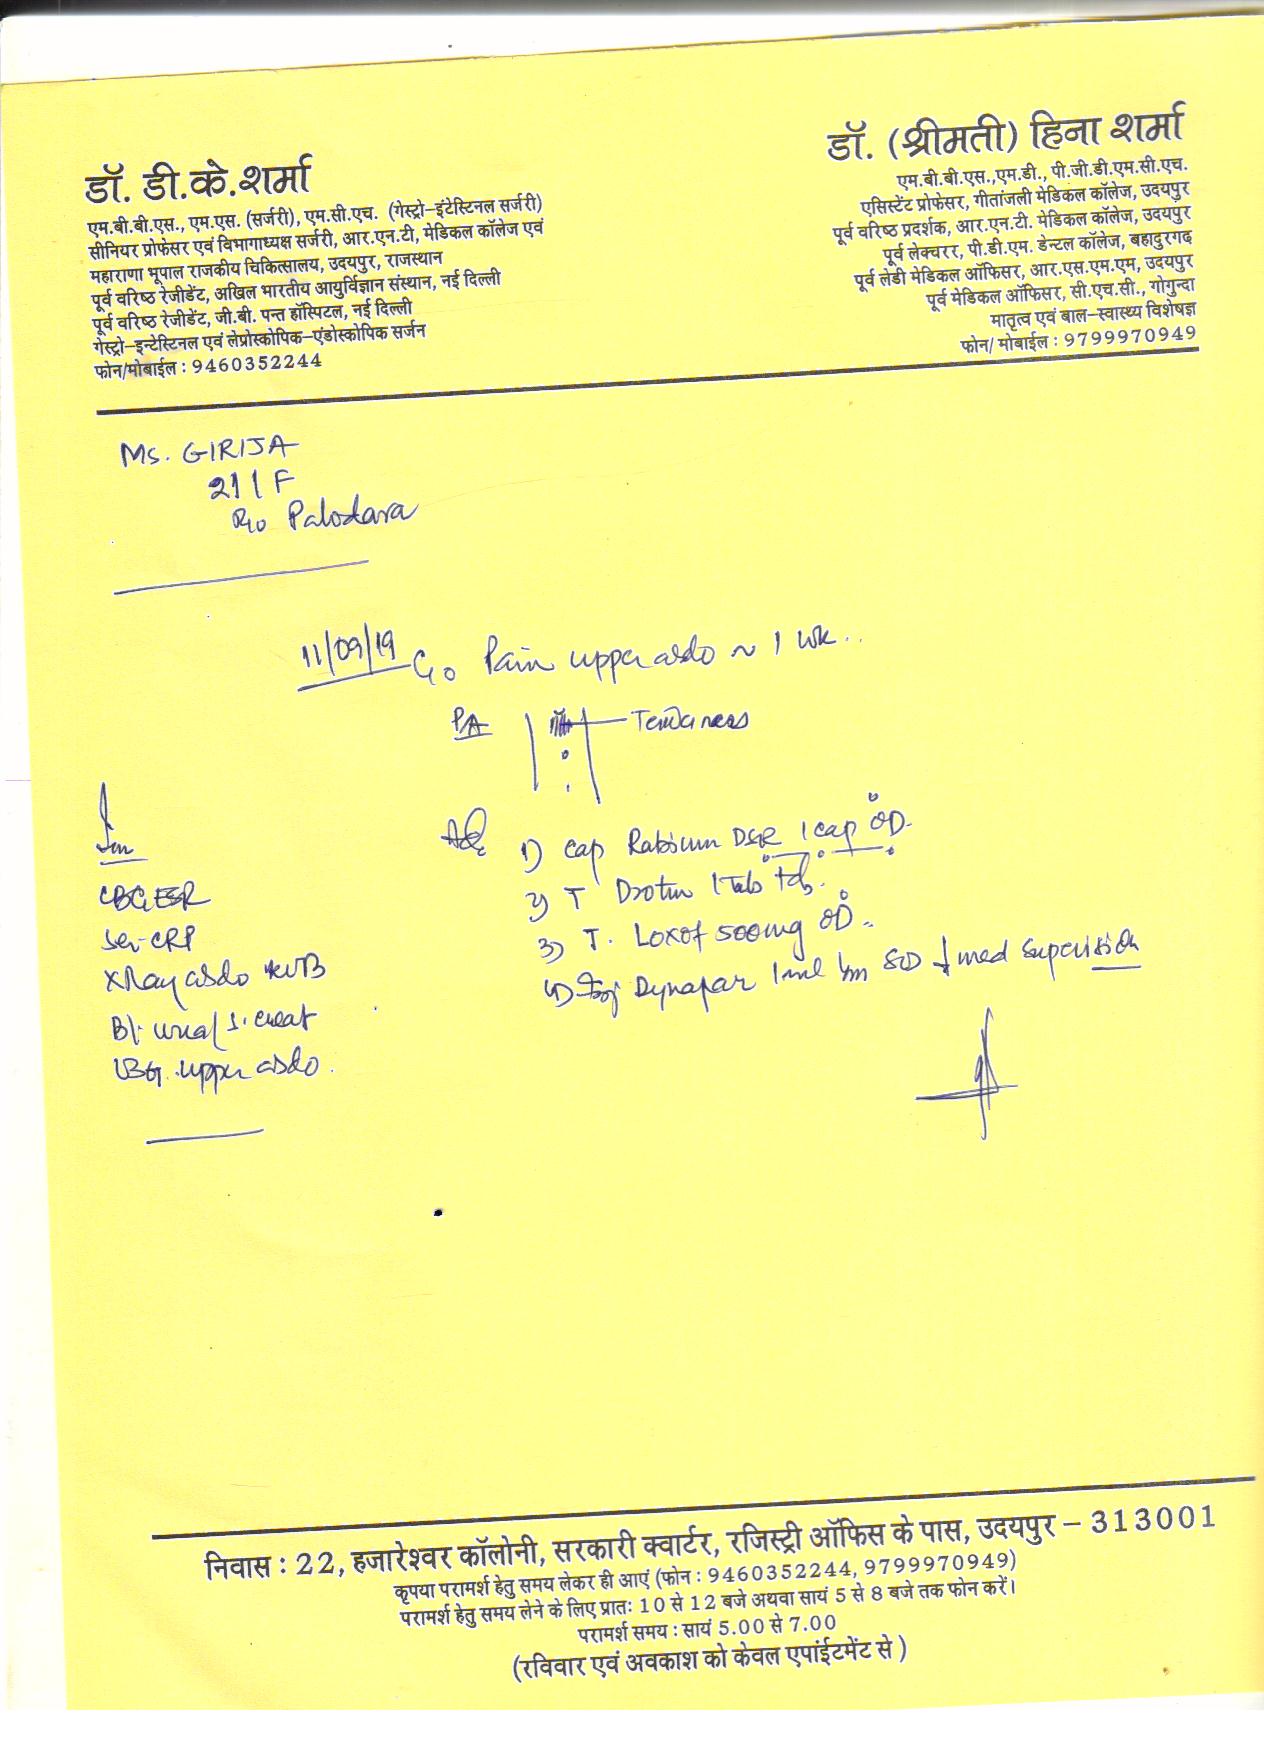 डॉ. डी.के.शर्मा
एम.बी.बी.एस., एम.एस. (सर्जरी), एम.सी.एच. (गेस्ट्रो-इंटेस्टिनल सर्जरी)
सीनियर प्रोफेसर एवं विभागाध्यक्ष सर्जरी, आर.एन.टी, मेडिकल कॉलेज एवं
महाराणा भूपाल राजकीय चिकित्सालय, उदयपुर, राजस्थान
पूर्व वरिष्ठ रेजीडेंट, अखिल भारतीय आयुर्विज्ञान संस्थान, नई दिल्ली
पूर्व वरिष्ठ रेजीडेंट, जी.बी. पन्त हॉस्पिटल, नई दिल्ली
गेस्ट्रो-इन्टेस्टिनल एवं लेप्रोस्कोपिक-एंडोस्कोपिक सर्जन
फोन/मोबाईल : 9460352244
डॉ. (श्रीमती) हिना शर्मा
एम.बी.बी.एस.,एम.डी., पी.जी.डी.एम.सी.एच.
एसिस्टेंट प्रोफेसर, गीतांजली मेडिकल कॉलेज, उदयपुर
पूर्व वरिष्ठ प्रदर्शक, आर.एन.टी. मेडिकल कॉलेज, उदयपुर
पूर्व लेक्चरर, पी.डी.एम. डेन्टल कॉलेज, बहादुरगढ़
पूर्व लेडी मेडिकल ऑफिसर, आर.एस.एम.एम, उदयपुर
पूर्व मेडिकल ऑफिसर, सी.एच.सी., गोगुन्दा
मातृत्व एवं बाल-स्वास्थ्य विशेषज्ञ
फोन/ मोबाईल : 9799970949
Ms. GIRIJA
21/F
R/o Palodara
11/09/19 C/o Pain upper abdo ~ 1 wk..
P/A Tenderness
Adv
1) Cap Rabium DSR 1 cap OD.
2) T Drotin 1 Tab tds.
3) T. Loxof 500mg OD.
4) Inj Dynapar 1ml Im SOD med supervision
Inv
CBC ESR
Ser CRP
X Ray abdo KUB
Bl. urea/S. creat
USG. upper abdo.
निवास : 22, हजारेश्वर कॉलोनी, सरकारी क्वार्टर, रजिस्ट्री ऑफिस के पास, उदयपुर - 313001
कृपया परामर्श हेतु समय लेकर ही आएं (फोन : 9460352244, 9799970949)
परामर्श हेतु समय लेने के लिए प्रातः 10 से 12 बजे अथवा सायं 5 से 8 बजे तक फोन करें।
परामर्श समय : सायं 5.00 से 7.00
(रविवार एवं अवकाश को केवल एपांईटमेंट से)